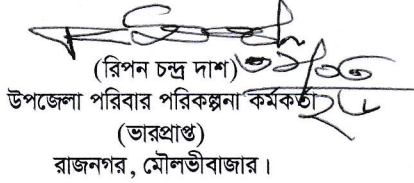 (রিপন চন্দ্র দাশ)
উপজেলা পরিবার পরিকল্পনা কর্মকর্তা
(ভারপ্রাপ্ত)
রাজনগর, মৌলভীবাজার।